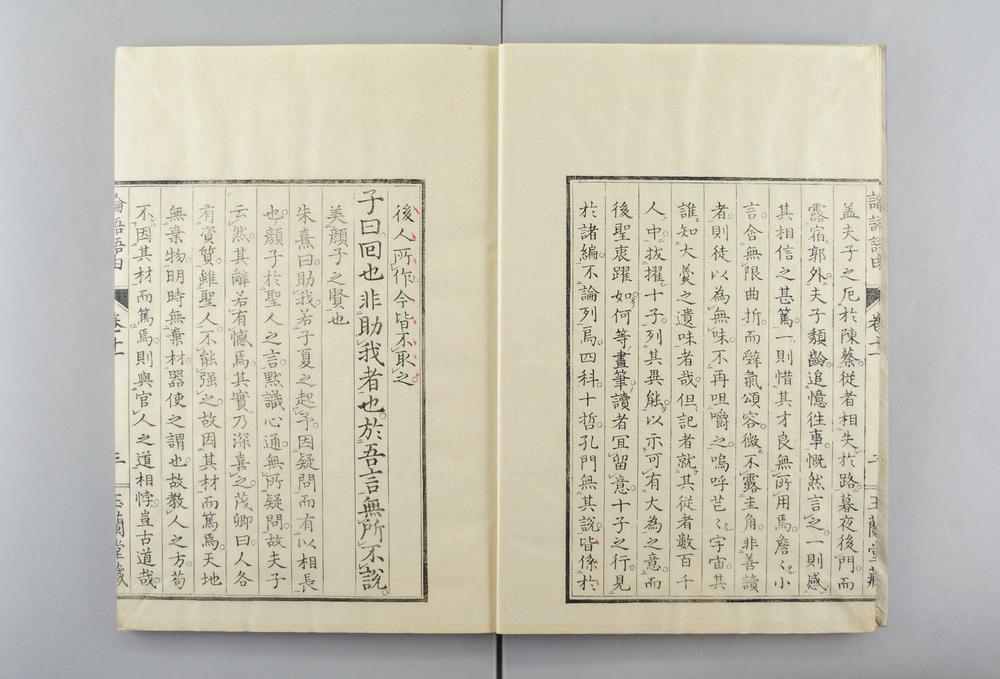 蓋夫子之厄於陳蔡從者相失於路暮夜後門而
露宿郭外夫子頽齡追憶往事慨然言之一則感
其相信之甚篤一則惜其才良無所用焉詹〻小
言含無限曲折而辭氣頌容微不露圭角非善讀
者則徒以為無味不再咀嚼之嗚呼芒〻宇宙其
誰知大羹之遺味者哉但記者就其從者數百千
人中拔擢十子列其異能以示可有大為之意而
後聖衷躍如何等畫筆讀者冝留意十子之行見
於諸編不論列焉四科十哲孔門無其說皆係於
後人所作今皆不取之
子曰回也非助我者也於吾言無所不說
美顏子之賢也
朱熹曰助我若子夏之起予因疑問而有以相長
也顏子於聖人之言默識心通無所疑問故夫子
云然其辭若有憾焉其實乃深喜之茂卿曰人各
有資質雖聖人不能强之故因其材而篤焉天地
無棄物明時無棄材器使之謂也故教人之方苟
不因其材而篤焉則與官人之道相悖豈古道哉
論語語由
卷十一
玉蘭堂藏